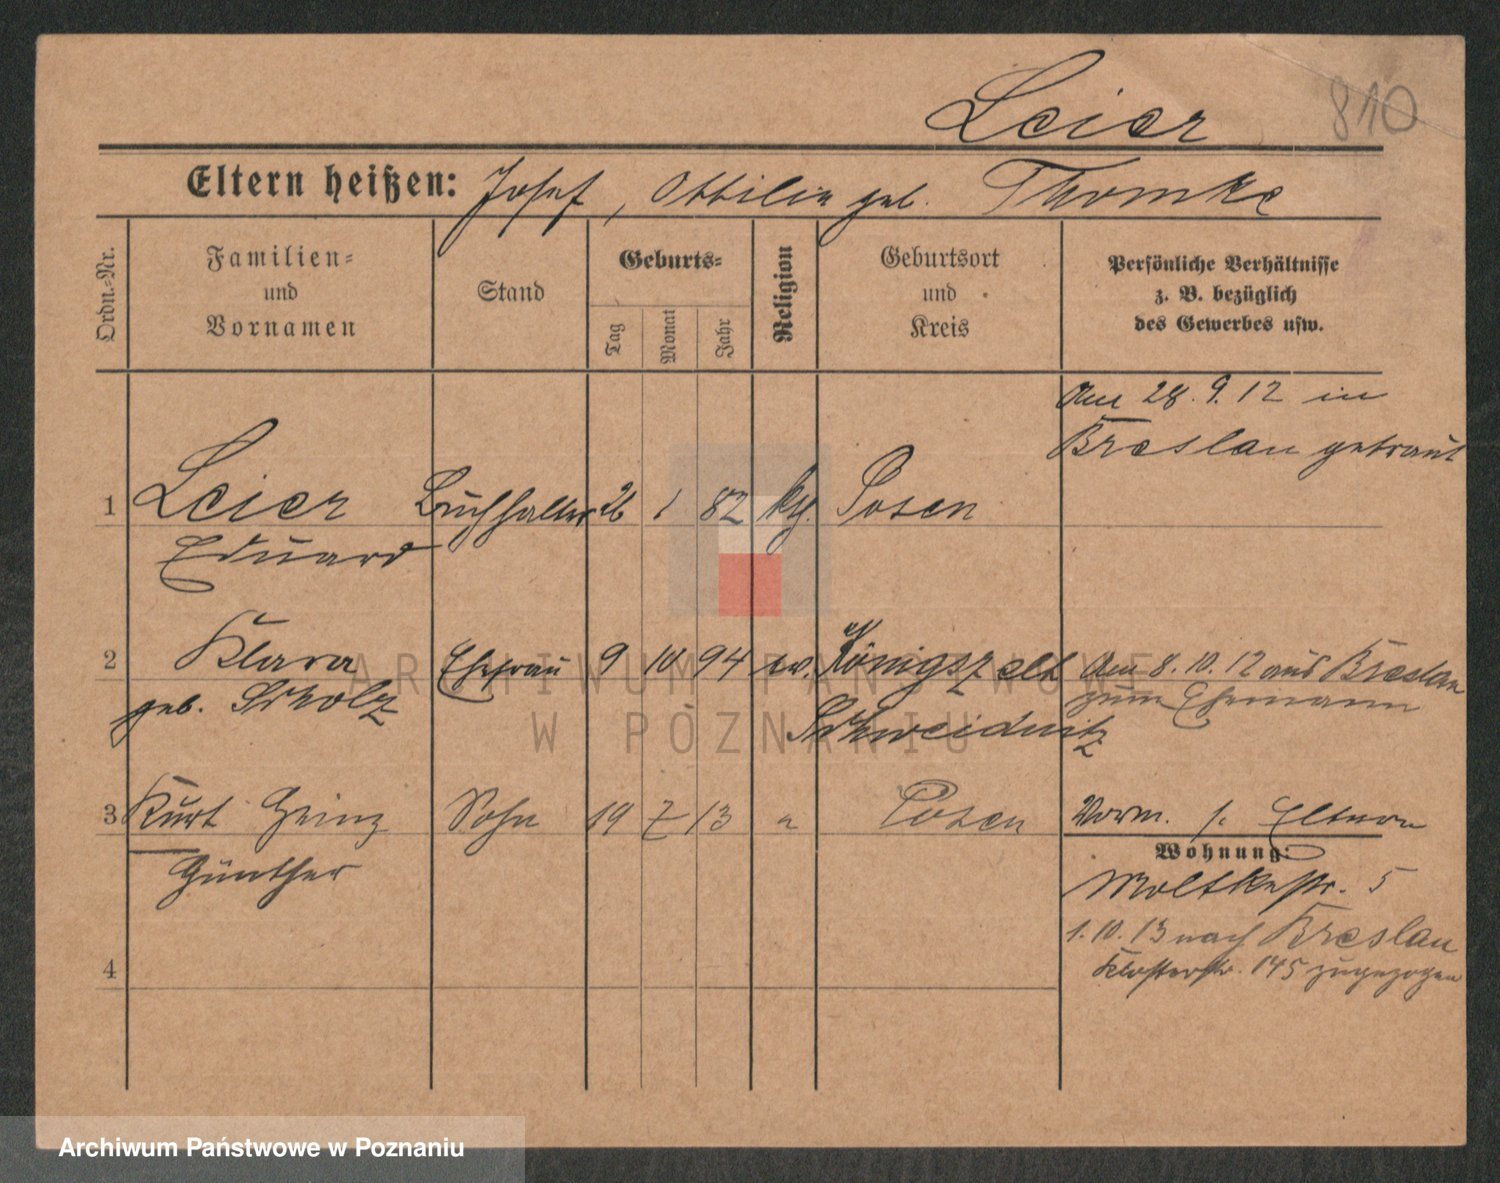 Leier 810
Eltern heißen: Josef, Ottilie geb. Thomke
Ordn.-Nr.
Familien- und Vornamen
Stand
Geburts-
Tag Monat Jahr
Religion
Geburtsort und Kreis
Persönliche Verhältnisse
z. B. bezüglich
des Gewerbes usw.
Am 28. 9. 12 in
Breslau getraut
1 Leier Buchhalter 26 1 82 kth. Posen
Eduard
2 Klara Ehefrau 9 10 94 ev. Königszelt Am 8. 10. 12 aus Breslau
geb. Scholz Schweidnitz zum Ehemann
3 Kurt Heinz Sohn 19 7 13 " Posen Vorm. s. Eltern
Günther
Wohnung:
Moltkestr. 5
1. 10. 13 nach Breslau
4 Klosterstr. 145 zugezogen
ARCHIWUM PAŃSTWOWE
W POZNANIU
Archiwum Państwowe w Poznaniu